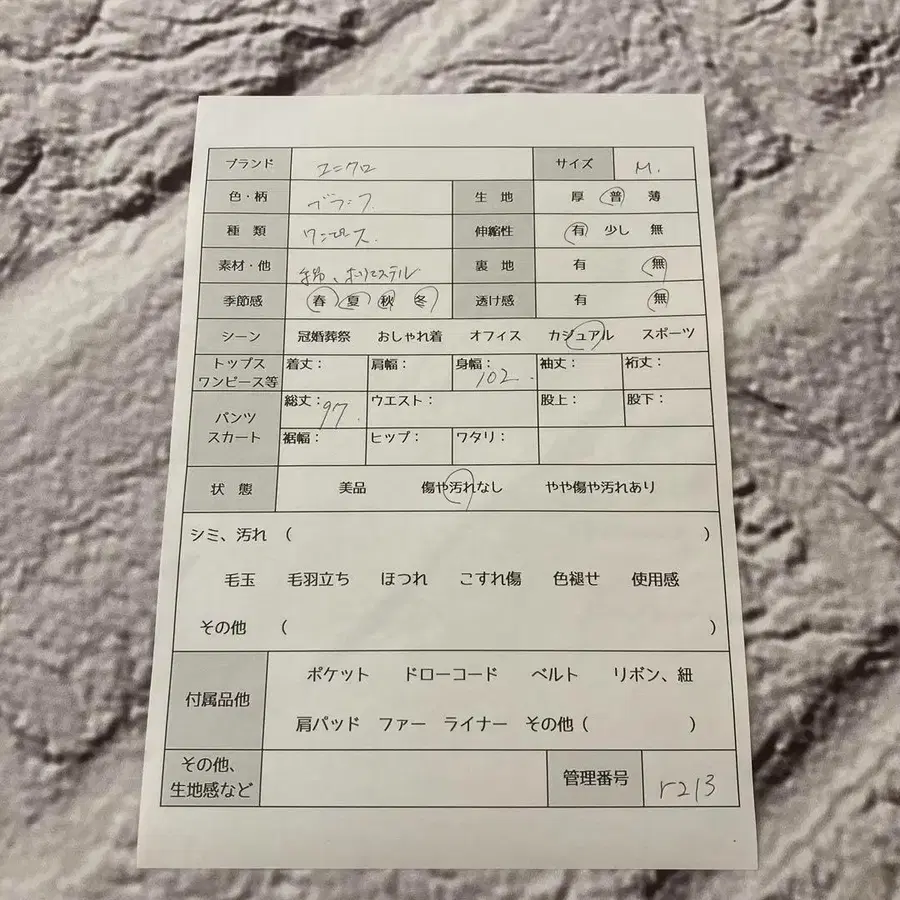 ブランド ユニクロ サイズ M.
色・柄 ブラック 生 地 厚 普 薄
種 類 ワンピース. 伸縮性 有 少し 無
素材・他 綿、ポリエステル 裏 地 有 無
季節感 春 夏 秋 冬 透け感 有 無
シーン 冠婚葬祭 おしゃれ着 オフィス カジュアル スポーツ
トップス
ワンピース等 着丈: 肩幅: 身幅: 102. 袖丈: 裄丈:
パンツ
スカート 総丈: 97. ウエスト: 股上: 股下:
裾幅: ヒップ: ワタリ:
状 態 美品 傷や汚れなし やや傷や汚れあり
シミ、汚れ ( )
毛玉 毛羽立ち ほつれ こすれ傷 色褪せ 使用感
その他 ( )
付属品他 ポケット ドローコード ベルト リボン、紐
肩パッド ファー ライナー その他 ( )
その他、
生地感など 管理番号 r213